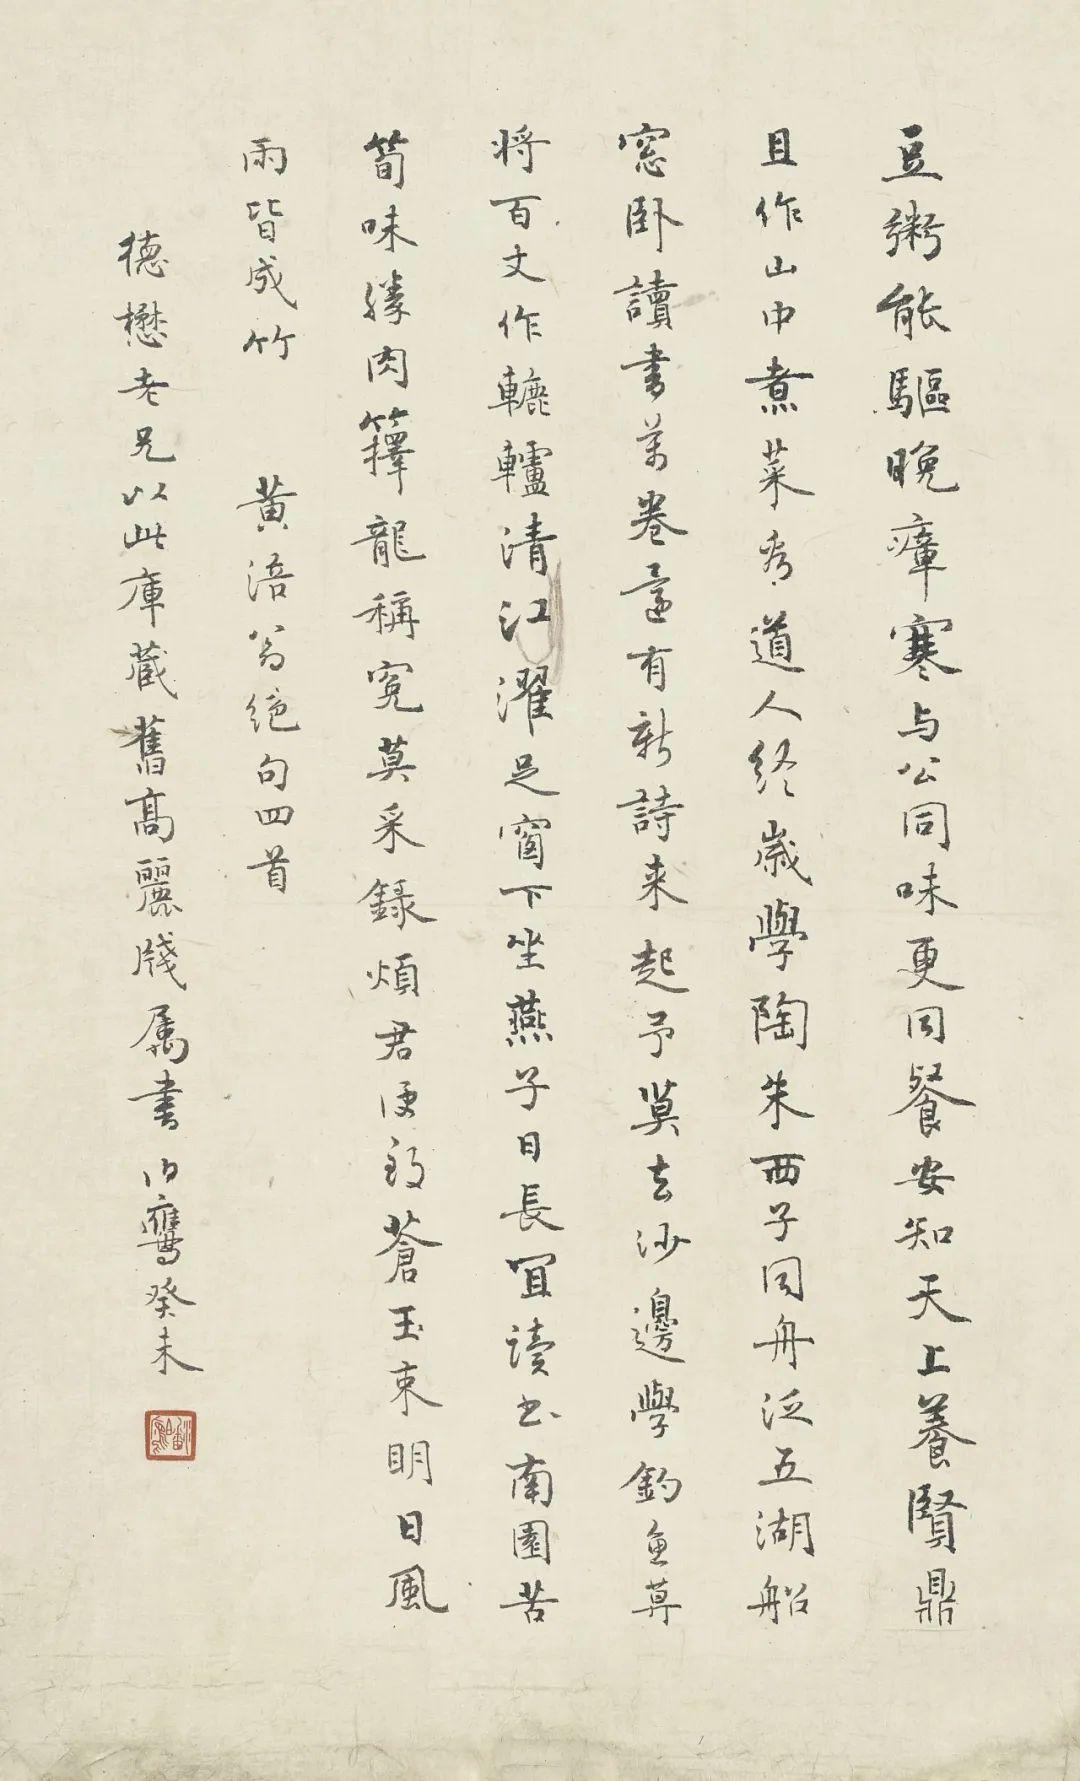 豆粥能驅晚瘴寒与公同味更同餐安知天上養賢鼎
且作山中煮菜看道人终歲學陶朱西子同舟泛五湖船
窓卧讀書萬卷還有新詩来起予莫去沙邊學釣魚莫
将百丈作轆轤清江濯足窗下坐燕子日長宜读书南園苦
筍味勝肉籜龍稱冤莫采録煩君便致蒼玉束明日風
雨皆成竹 黄涪翁绝句四首
德懋老兄以此庫藏舊高麗牋属書 伯鷹癸未